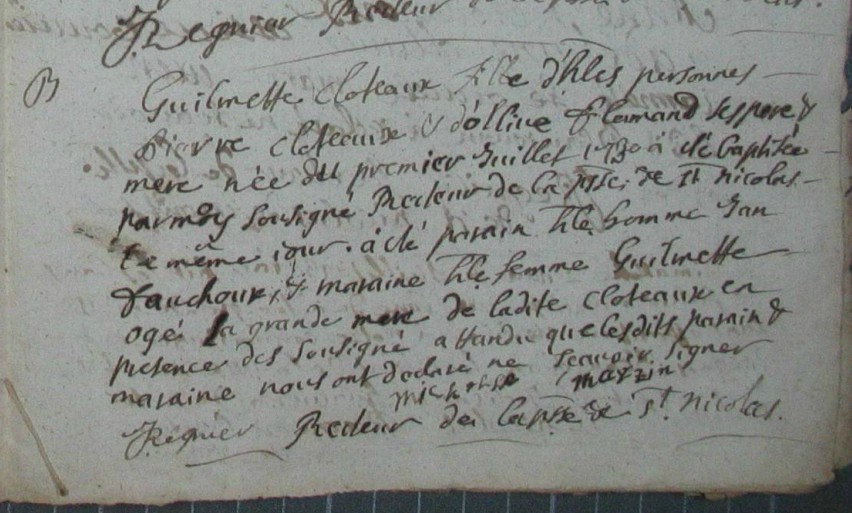 Regnier Recteur
B
Guilmette Cloteaux fille d'hles personnes
pierre cloteaux & d'ollive flamand ses pere &
mere née du premier Juillet 1730 a été baptisée
par moy sousigné Recteur de la psse. de St nicolas
le même jour. à été parain hle. homme Jan
fauchoux, & maraine hle femme Guilmette
ogé la grande mere de ladite cloteaux en
presence des sousigné attandu que lesdits parain &
maraine nous ont declaré ne scavoir signer
michelle marzin
Regnier Recteur de la psse de St. nicolas.